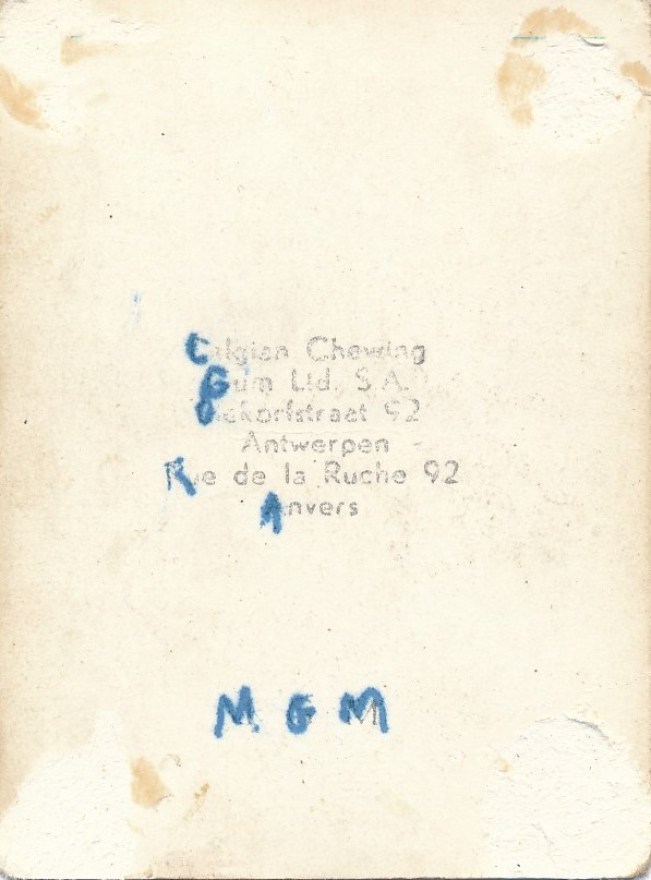 Belgian Chewing
Gum Ltd. S.A.
Biekorfstraat 92
Antwerpen
Rue de la Ruche 92
Anvers
M G M